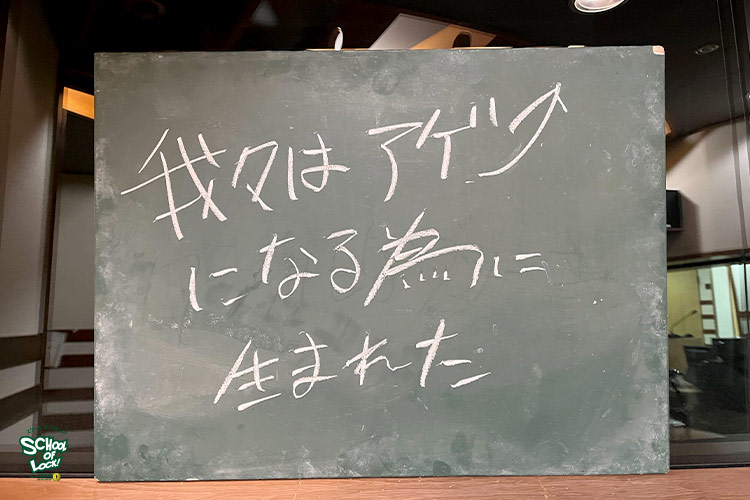 我々はアゲ↗
になる為に
生まれた
SCHOOL
OF
LOCK!